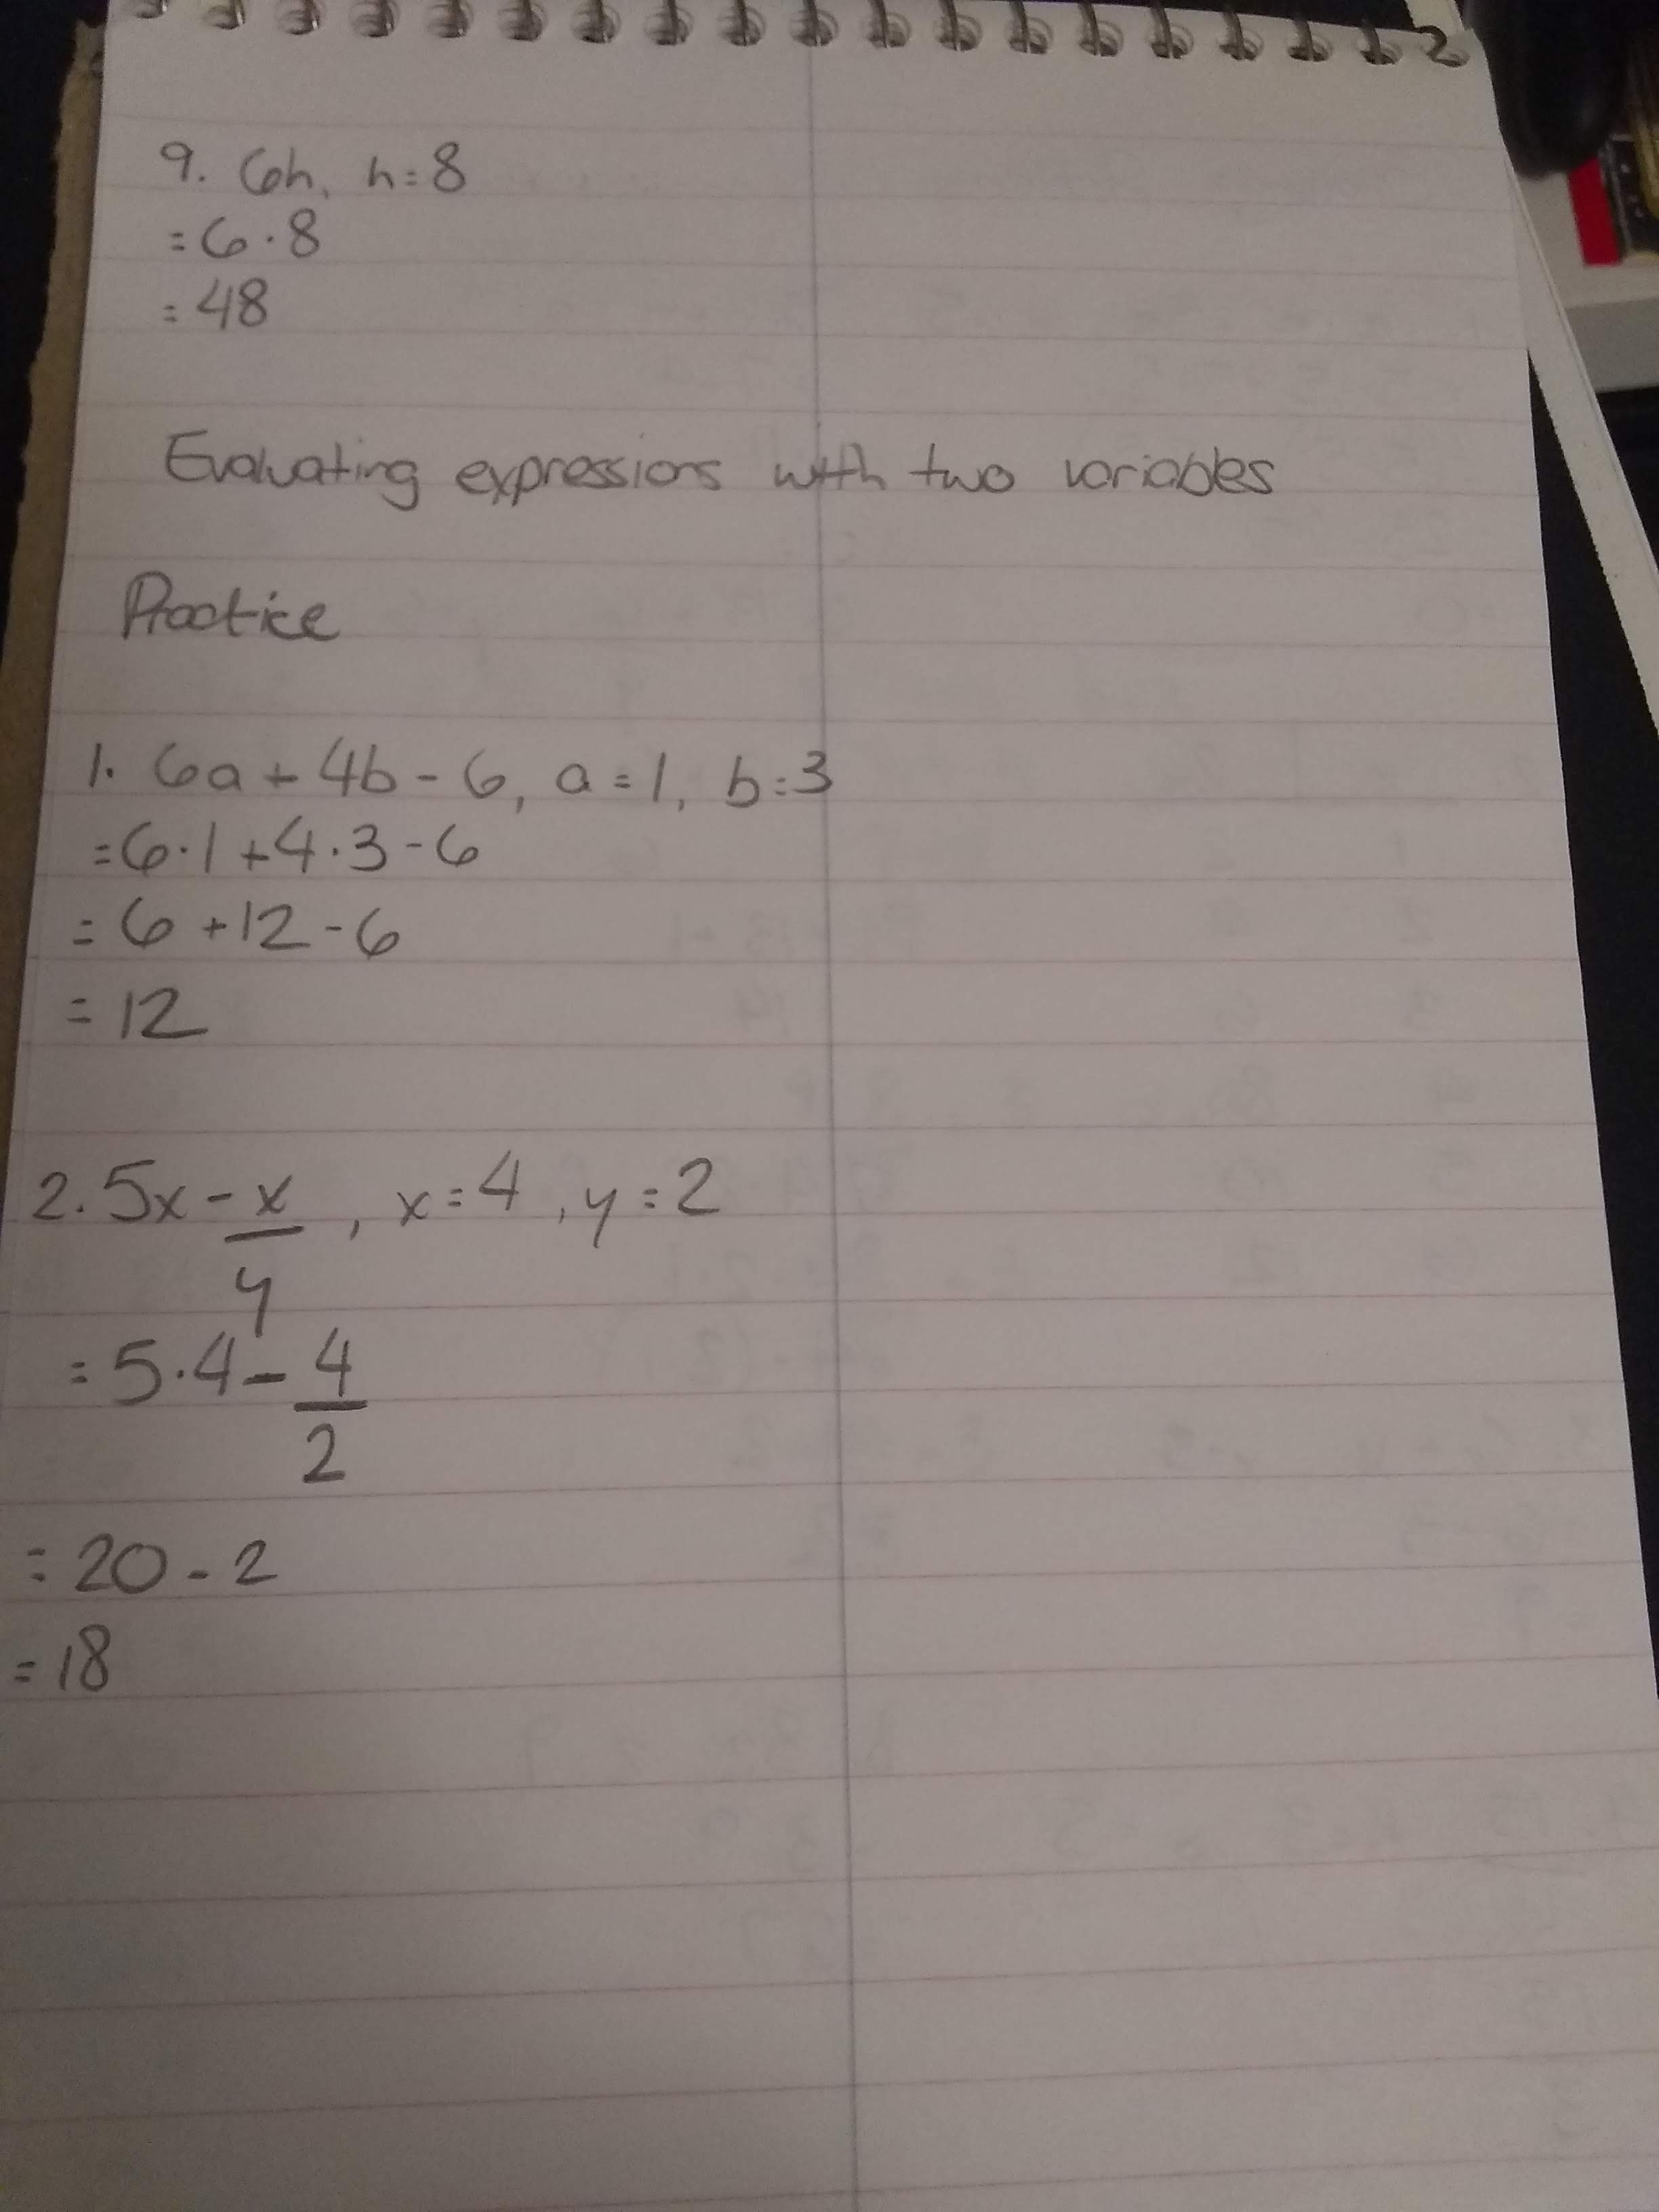 2
9. 6h, h=8
=6·8
=48
Evaluating expressions with two variables
Practice
1. 6a+4b-6, a=1, b=3
=6·1+4·3-6
=6+12-6
=12
2. 5x-x/y, x=4, y=2
=5·4-4/2
=20-2
=18